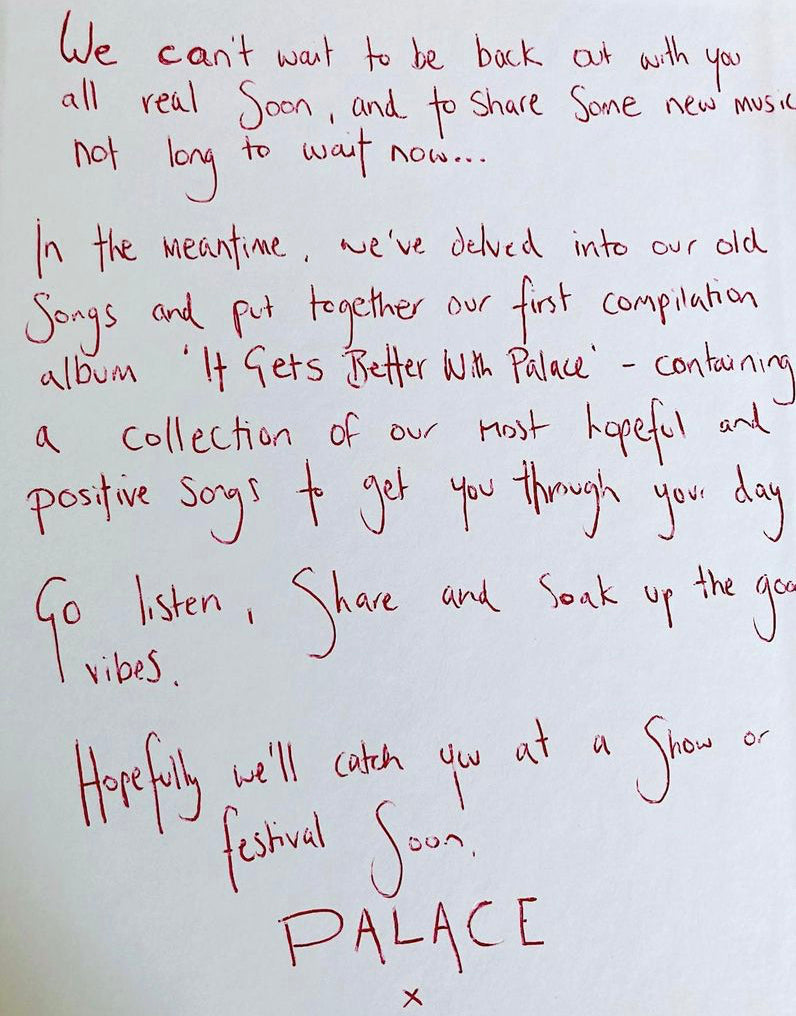 We can't wait to be back out with you
all real Soon, and to share Some new music
not long to wait now...
In the meantime, we've delved into our old
Songs and put together our first compilation
album 'It Gets Better With Palace' - containing
a collection of our most hopeful and
positive songs to get you through your day
Go listen, Share and Soak up the goo
vibes.
Hopefully we'll catch you at a Show or
festival Soon.
PALACE
x